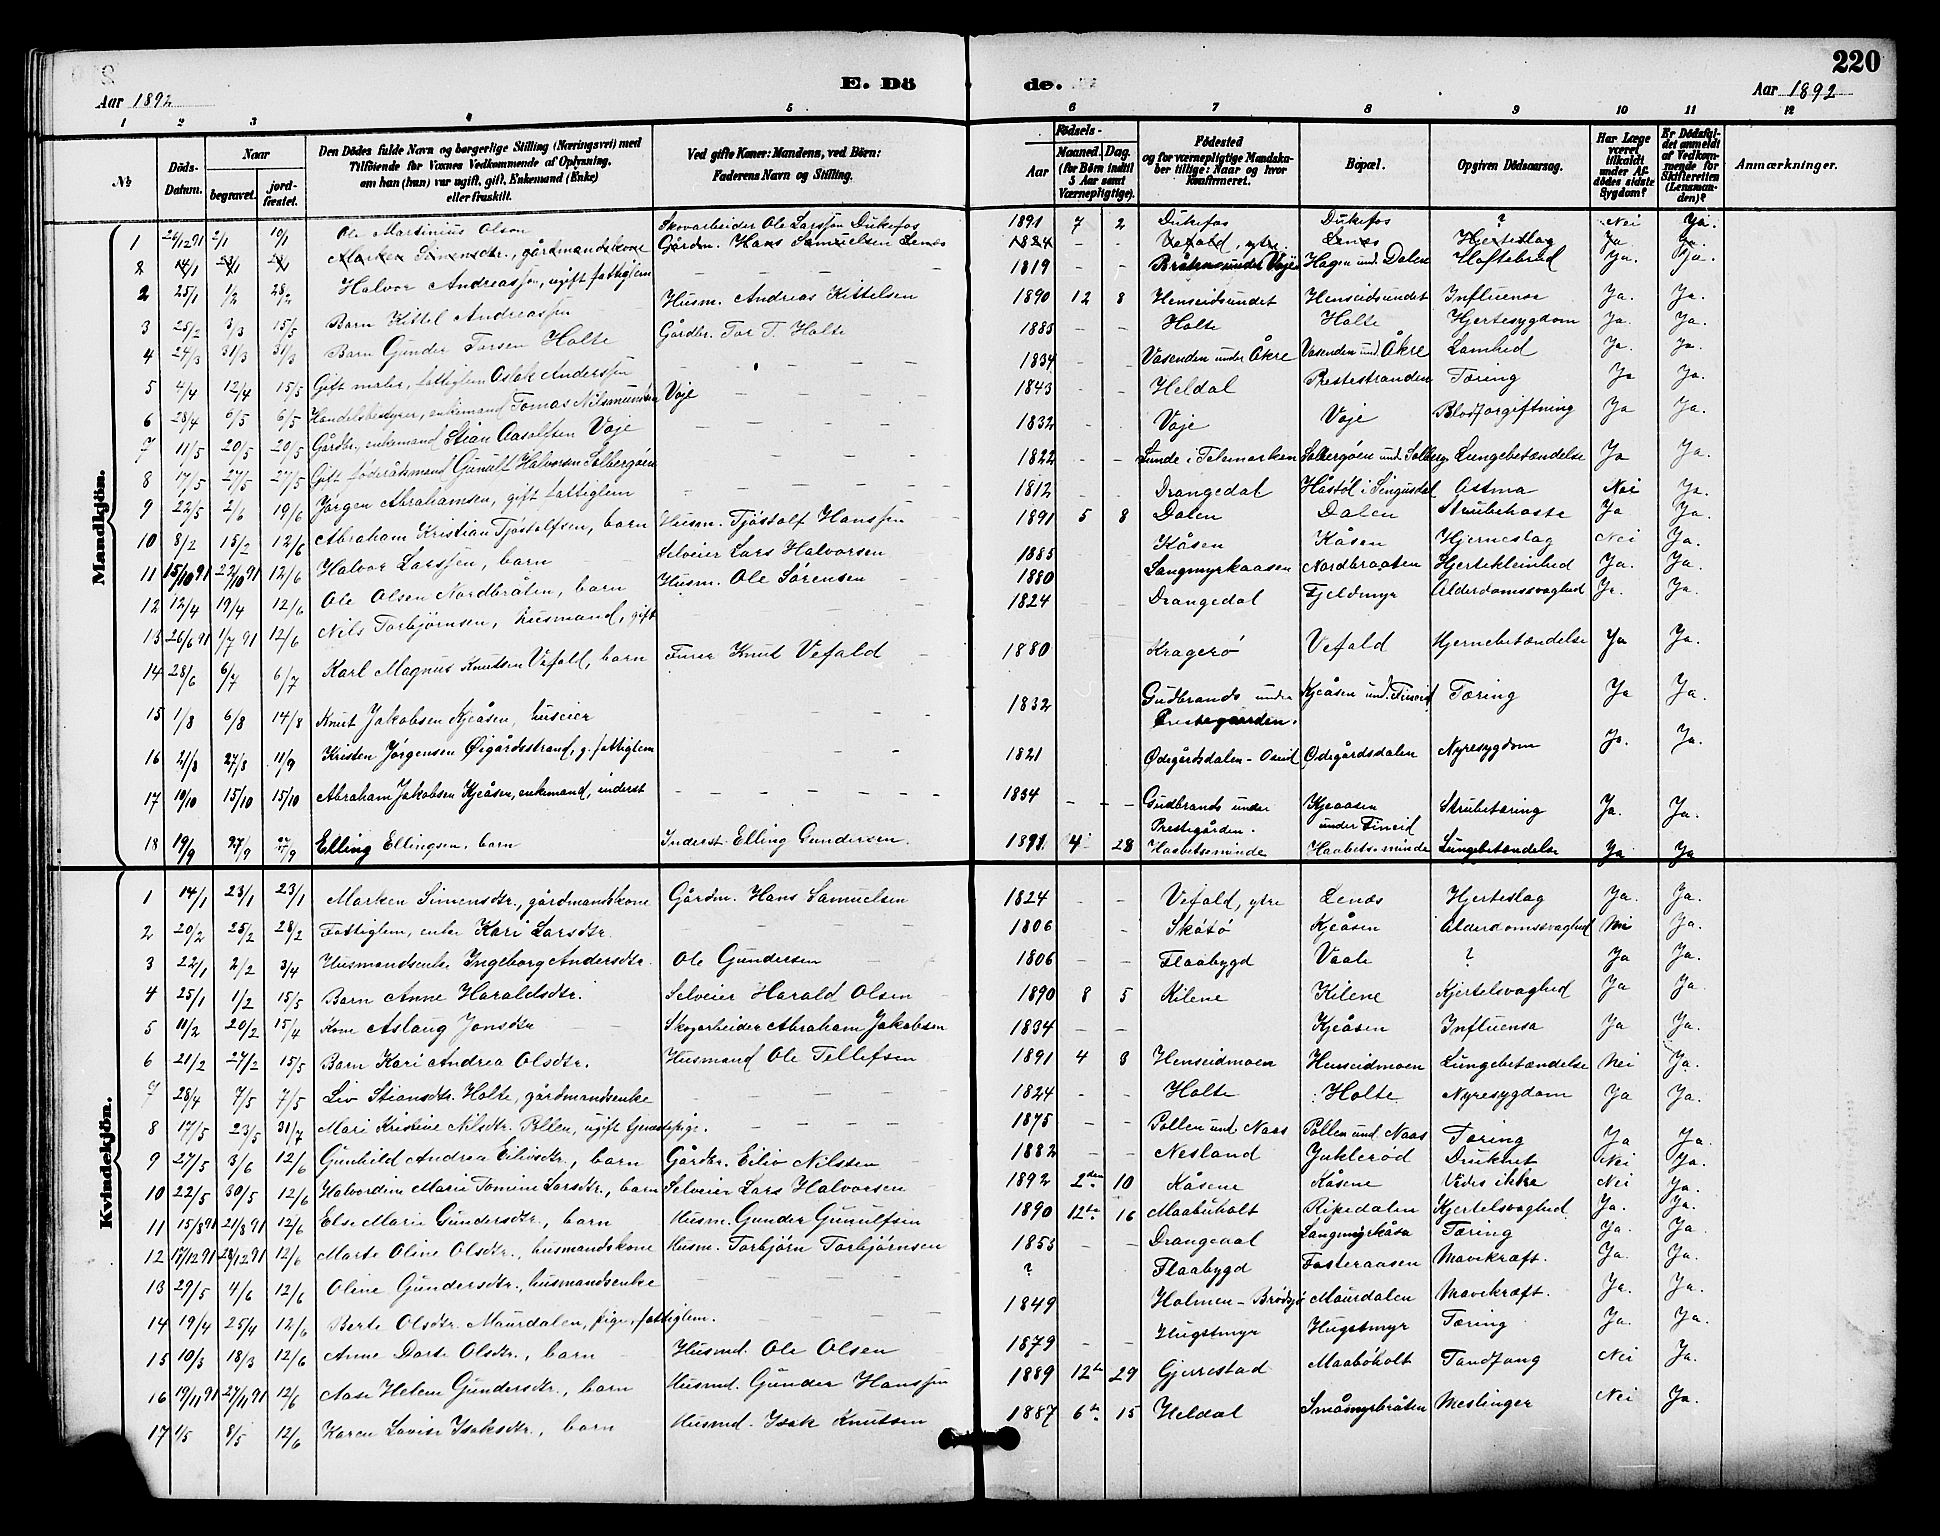 220
E. Dö de.
Aar 1892
Aar 1892
1 2 3 4 5 6 7 8 9 10 11 12
№
Döds-Datum.
Naar
begravet.
jordfæstet.
Den Dödes fulde Navn og borgerlige Stilling (Næringsvei) med Tilföiende for Voxnes Vedkommende af Oplysning, om han (hun) var ugift, gift, Enkemand (Enke) eller fraskilt.
Ved gifte Koner: Mandens, ved Börn: Faderens Navn og Stilling.
Födsels-
Aar
Maaned. Dag.
(for Börn indtil 5 Aar samt Værnepligtige).
Födested og for værnepligtige Mandskaber tillige: Naar og hvor Konfirmeret.
Bopæl.
Opgiven Dödsaarsag.
Har Læge været tilkaldt under Afdödes sidste Sygdom?
Er Dödsfaldet anmeldt af Vedkommende for Skifteretten (Lensmanden)?
Anmærkninger.
Mandkjön.
1 26/12 91 2/1 10/1 Ole Martinius Olsen Skovarbeider Ole Larssøn Dukefos 1891 7 2 Dukefos Dukefos ? Nei Ja.
2 14/1 23/1 23/1 Marken Simensdtr., gårdmandskone Gårdm. Hans Samuelsen Lenæs 1824 - - Vefald, ytre Lenæs Hjerteslag Ja Ja.
2 25/1 1/2 28/2 Halvor Andreassen, ugift fattiglem 1819 - - Bråten under Voje Hagen und. Dalene Hoftebrud Ja. Ja.
3 25/2 3/3 15/5 Barn Kittel Andreassen Husm. Andreas Kittelsen 1890 12 8 Henseidsundet Henseidsundet Influensa Ja. Ja.
4 24/3 31/3 31/3 Barn Gunder Torsen Holte Gårdbr. Tor T. Holte 1885 - - Holte Holte Hjertesygdom Ja. Ja.
5 4/4 12/4 15/5 Gift maler, fattiglem Aslak Anderssen 1834 - - Vasenden under Åkre Vasenden und. Åkre Lamhed Ja Ja.
6 28/4 6/5 6/5 Handelsbestyrer, enkemand Tomas Nilsmundsen Voje 1843 - - Heldal Prestestranden Tæring Ja Ja.
7 11/5 20/5 20/5 Gårdbr., enkemand Stian Aasolfsen Voje 1832 - - Voje Voje Blodforgiftning Ja Ja.
8 17/5 27/5 27/5 Gift föderådsmand Gunult Halvorsen Solbergøen 1822 - - Lunde i Telemarken Solbergøen und. Solberg Lungebetændelse Ja Ja.
9 22/5 2/6 19/6 Jørgen Abrahamsen, gift fattiglem 1812 - - Drangedal Håstøl i Sengusdal Astma Nei Ja.
10 8/2 15/2 12/6 Abraham Kristian Tjøstolfsen, barn Husm. Tjøstolf Hanssen 1891 5 8 Dalen Dalen Strubehoste Ja Ja.
11 15/10 91 22/10 91 12/6 Halvor Larssen, barn Selveier Lars Halvorsen 1885 Kåsen Kåsen Hjerneslag Nei Ja.
12 12/4 19/4 12/6 Ole Olsen Nordbråten, barn Husm. Ole Sørensen 1880 Langmyrkaasen Nordbraaten Hjertekleinhed Ja. Ja.
13 26/6 91 1/7 91 12/6 Nils Torbjørnsen, husmand, gift 1824 Drangedal Fjeldmyr Alderdomssvaghed Ja. Ja.
14 28/6 6/7 6/7 Karl Magnus Knutsen Vefald, barn Furer Knut Vefald 1880 Kragerø Vefald Hjernebetændelse Ja Ja.
15 1/8 6/8 14/8 Knut Jakobsen Kjeåsen, huseier 1832 Gudbrands under Prestegaarden. Kjeåsen und. Fineid Tæring Ja Ja.
16 21/8 27/8 11/9 Kristen Jörgensen Øigårdsstrand, g. fattiglem 1821 Ødegårdsdalen - Oseid Ødegårdsdalen Nyresygdom Ja. Ja.
17 10/10 15/10 15/10 Abraham Jakobsen Kjeåsen, enkemand, inderst 1834 - - Gudbrands under Prestegården. Kjeaasen under Fineid Strubetæring Ja. Ja.
18 19/9 27/9 27/9 Elling Ellingsen, barn Inderst Elling Gundersen. 1891 4 28 Haabetsminde Haabetsminde Lungebetændelse Ja Ja
Kvindekjön.
1 14/1 23/1 23/1 Marken Simensdtr., gårdmandskone Gårdm. Hans Samuelsen 1824 - - Vefald, ytre Lenæs Hjerteslag Ja. Ja.
2 20/2 25/2 28/2 Fattiglem, enke Kari Larsdtr. 1806 - Skåtö Kjeåsen Alderdomssvaghed Nei Ja.
3 22/1 2/2 3/4 Husmandsenke Ingeborg Andersdtr. Ole Gundersen 1806 - - Flaabygd Vaale ? Ja Ja.
4 25/1 1/2 15/5 Barn Anne Haraldsdtr. Selveier Harald Olsen 1890 8 5 Kilene Kilene Kjertelsvaghed Ja Ja.
5 11/2 20/2 15/4 Kone Aslaug Jonsdtr Skogarbeider Abraham Jakobsen 1834 - - Kjeåsen Influensa Ja Ja.
6 21/2 27/2 15/5 Barn Kari Andrea Olsdtr. Husmand Ole Tellefsen 1891 4 3 Henseidmoen Henseidmoen Lungebetændelse Nei Ja.
7 28/4 7/5 7/5 Liv Stiansdtr. Holte, gårdmandsenke 1824 - - Holte Holte Nyresygdom Ja Ja.
8 17/5 23/5 31/7 Mari Kristine Nilsdtr. Pollen, ugift tjenestepige. 1875 - - Pollen und. Naas Pollen und. Naas Tæring Ja Ja.
9 27/5 3/6 12/6 Gunhild Andrea Eilivsdtr., barn Gårdbr. Eiliv Nilssen 1882 - - Nesland Juklerød Druknet Nei Ja.
10 22/5 30/5 12/6 Halvordine Marie Tomine Larsdtr., barn Selveier Lars Halvorsen 1892 2den 10 Kåsene Kåsene Vides ikke Nei Ja.
11 15/8 91 21/8 91 12/6 Else Marie Gundersdtr., barn Husm. Gunder Gunulfsen 1890 12te 16 Maabuholt Ripedalen Kjertelsvaghed Ja. Ja.
12 17/12 91 28/12 91 12/6 Marte Oline Olsdtr., husmandskone Husm. Torbjörn Torbjörnsen 1853 - - Drangedal Langmyrkåsa Tæring Ja Ja.
13 29/5 4/6 12/6 Oline Gundersdtr., husmandsenke ? Flaabygd Fosteraasen Mavekræft. Ja. Ja.
14 19/4 25/4 12/6 Berte Olsdtr. Maurdalen, pige, fattiglem. 1849 Holmen - Brødsjø Maurdalen Mavekræft. Ja. Ja.
15 10/3 18/3 12/6 Anne Dorte Olsdtr., barn Husmd. Ole Olsen 1879 - - Hugstmyr Hugstmyr Tæring Ja. Ja.
16 19/11 91 27/11 91 12/6 Aase Helene Gundersdtr., barn Husmd. Gunder Hanssen 1889 12te 29 Gjerrestad Maabøholt Tandfang Nei Ja.
17 1/5 8/5 12/6 Karen Lovise Isaksdtr., barn Husmd. Isak Knutsen 1887 6te 15 Heldal Småmyrbråten Meslinger Nei Ja.